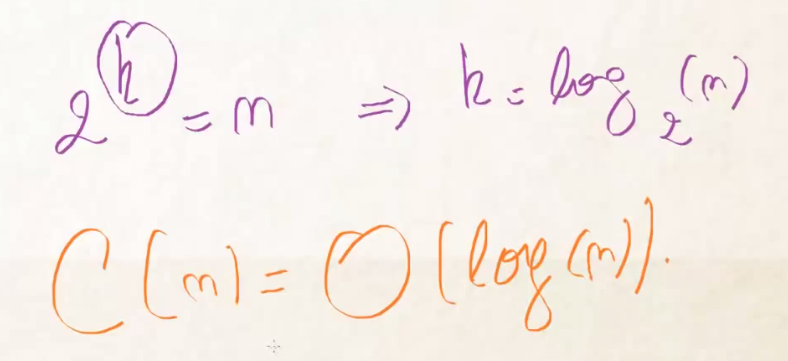 2^k = n ⇒ k = log₂(n)
C(n) = O(log(n)).